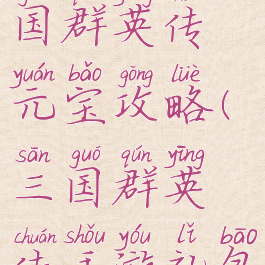 国群英传
yuán bǎo gōng lüè
元宝攻略(
sān guó qún yīng
三国群英
chuán shǒu yóu lǐ bāo
传手游礼包